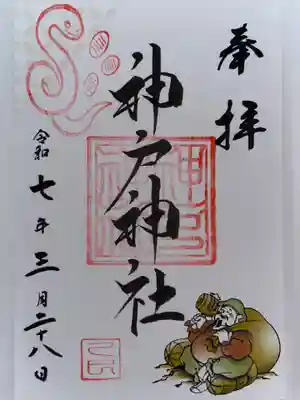 奉拝
神戸神社
令和七年三月二十八日